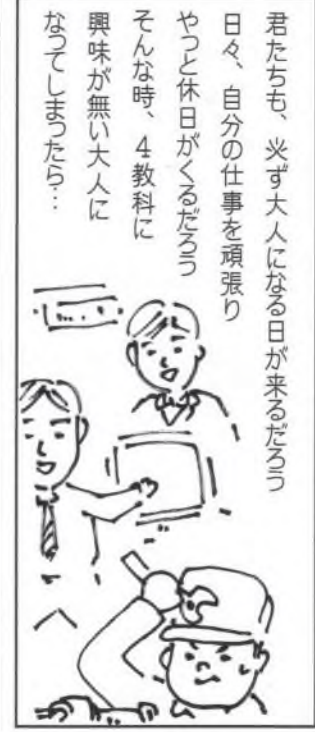 君たちも、必ず大人になる日が来るだろう
日々、自分の仕事を頑張り
やっと休日がくるだろう
そんな時、4教科に
興味が無い大人に
なってしまったら…